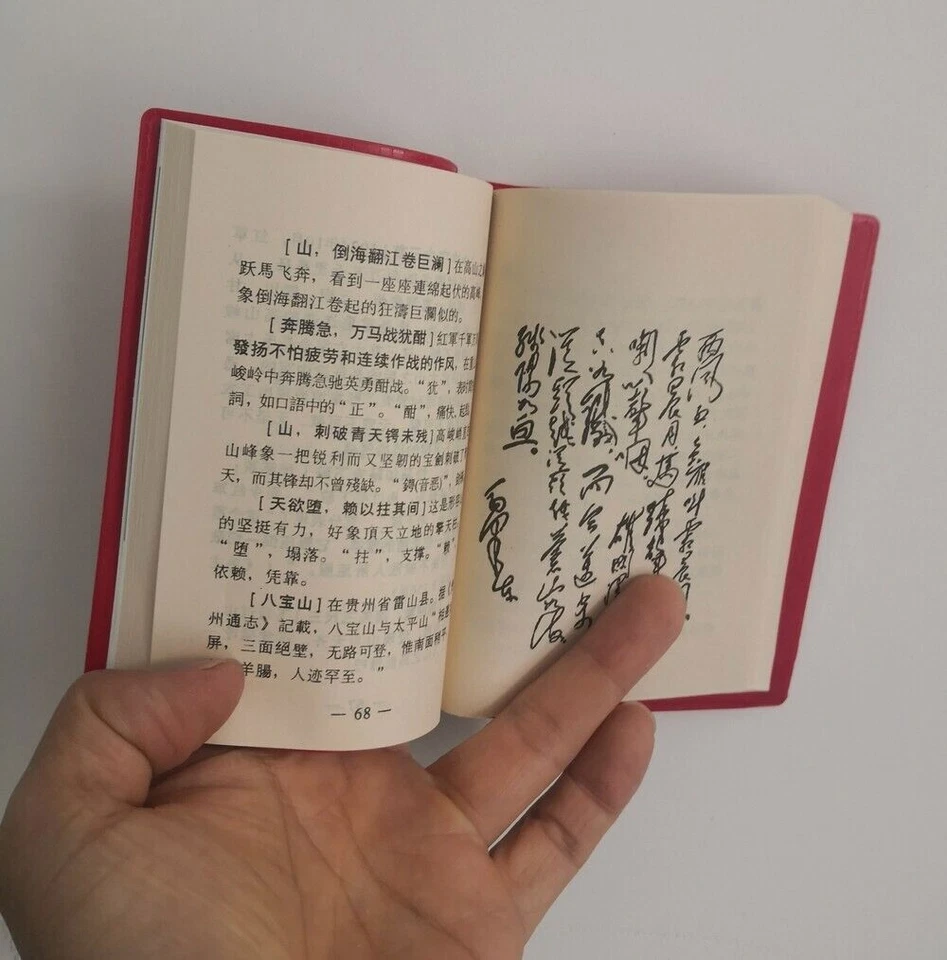 [山，倒海翻江卷巨澜] 在高山之
跃馬飞奔，看到一座座連绵起伏的高峰
象倒海翻江卷起的狂濤巨瀾似的。
[奔腾急，万马战犹酣] 红軍千軍万
發扬不怕疲劳和连续作战的作风，在
峻岭中奔腾急驰英勇酣战。“犹”，表
詞，如口語中的“正”。“酣”，痛快，起
[山，刺破青天锷未残] 高峻
山峰象一把锐利而又坚韌的宝劍刺破了
天，而其锋却不曾殘缺。“鍔(音恶)”，
[天欲堕，赖以拄其间] 这是形
的坚挺有力，好象頂天立地的擎天
“堕”，塌落。“拄”，支撑。“赖”
依赖，凭靠。
[八宝山] 在贵州省雷山县。据《
州通志》記載，八宝山与太平山“相
屏，三面絕壁，无路可登，惟南面稍平
羊腸，人迹罕至。”
— 68 —
西风烈，長空雁叫霜晨
霜晨月，馬蹄聲
喇叭聲咽。雄関
真如鐵，而今邁步
從頭越。從頭越，蒼山如海，
残陽如血。
毛澤东